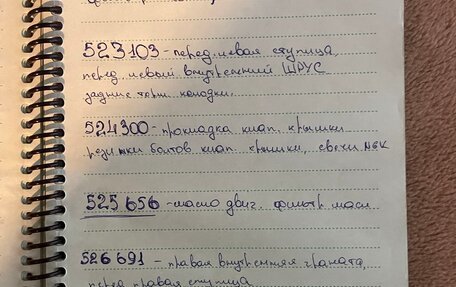 523103 - перед. левая ступица,
перед левый внутренний ШРУС
задние торм. колодки.
524300 - прокладка клап. крышки
резинки болтов клап. крышки, свечи NGK
525656 - масло двиг. фильтр масл
526691 - правая внутренняя граната,
перед правая ступица